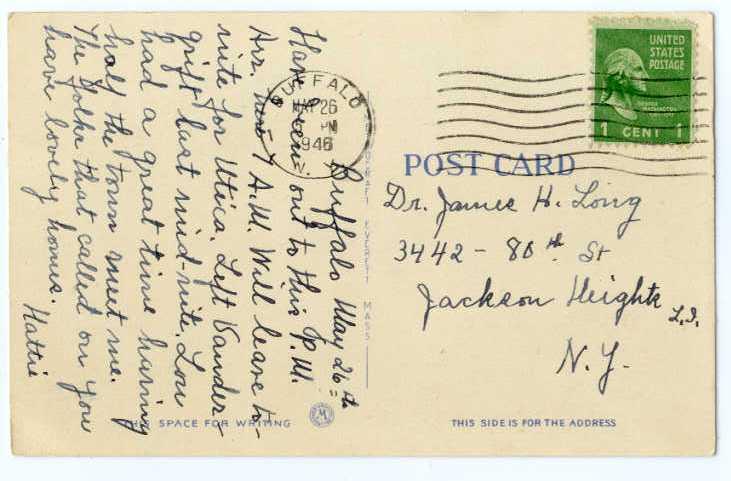 Buffalo May 26th
Have been out to this P.M.
Arr. here 7 A.M. Will leave to-
nite for Utica. Left Vander-
grift last mid-nite. Lou
had a great time having
half the town meet me.
The folks that called on you
have lovely homes. Hattie
BUFFALO
MAY 26
PM
1946
N.
UNITED
STATES
POSTAGE
GEORGE
WASHINGTON
1 CENT 1
POST CARD
Dr. James H. Long
3442 - 80th St
Jackson Heights L.I.
N.Y.
EVERETT MASS
SPACE FOR WRITING
M
THIS SIDE IS FOR THE ADDRESS